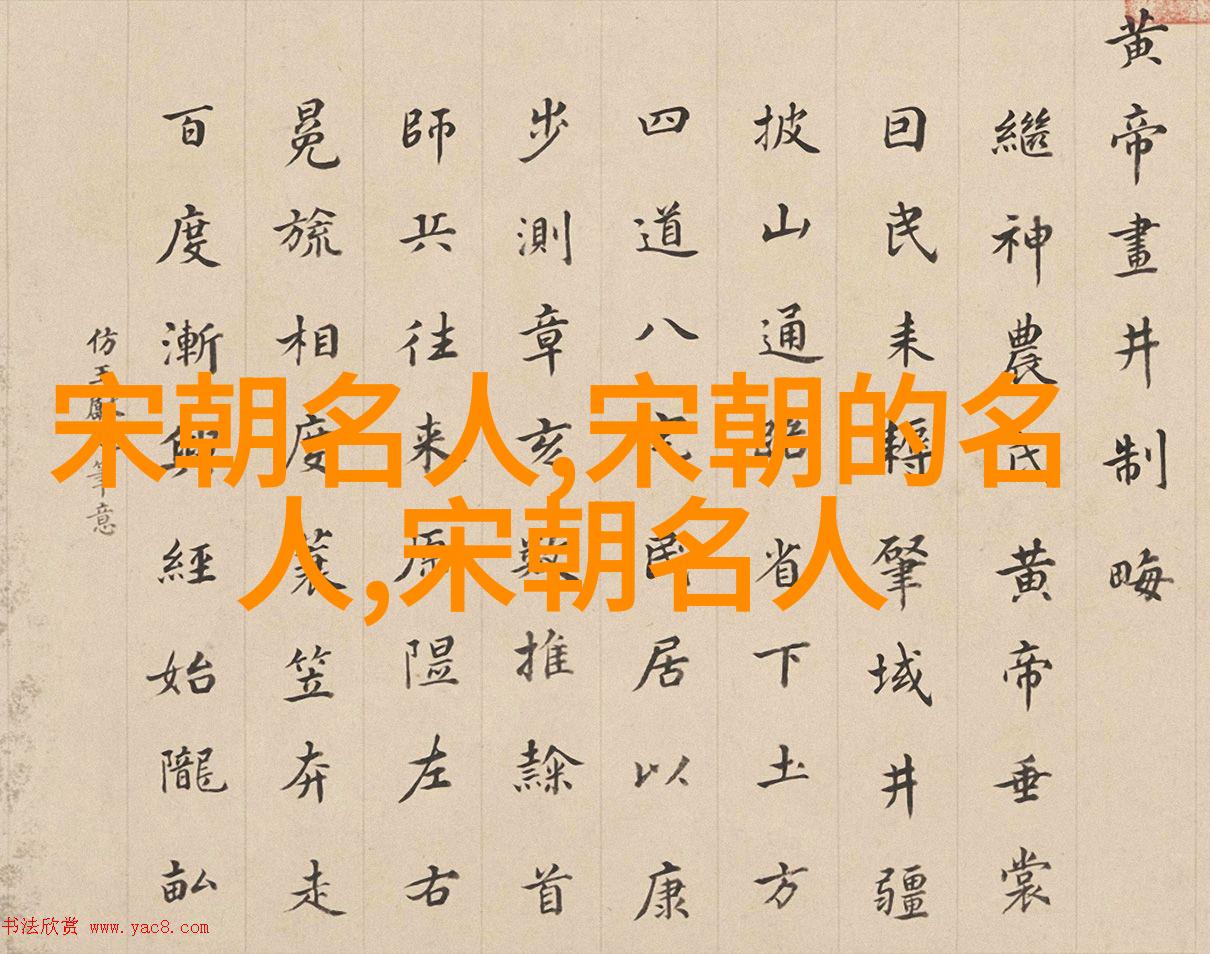 黄帝畫井制畮
繼神農氏黄帝垂裳
囙民耒耨肇域井疆
披山通路省下土方
四道八居以康
步測章亥數推隸首
師兵往来原隰左右
冕旒相度蓑笠奔走
百度漸興經始隴畝
仿王獻筆意
宋朝名人,宋朝的名
人,宋朝名人
书法欣赏 www.yac8.com